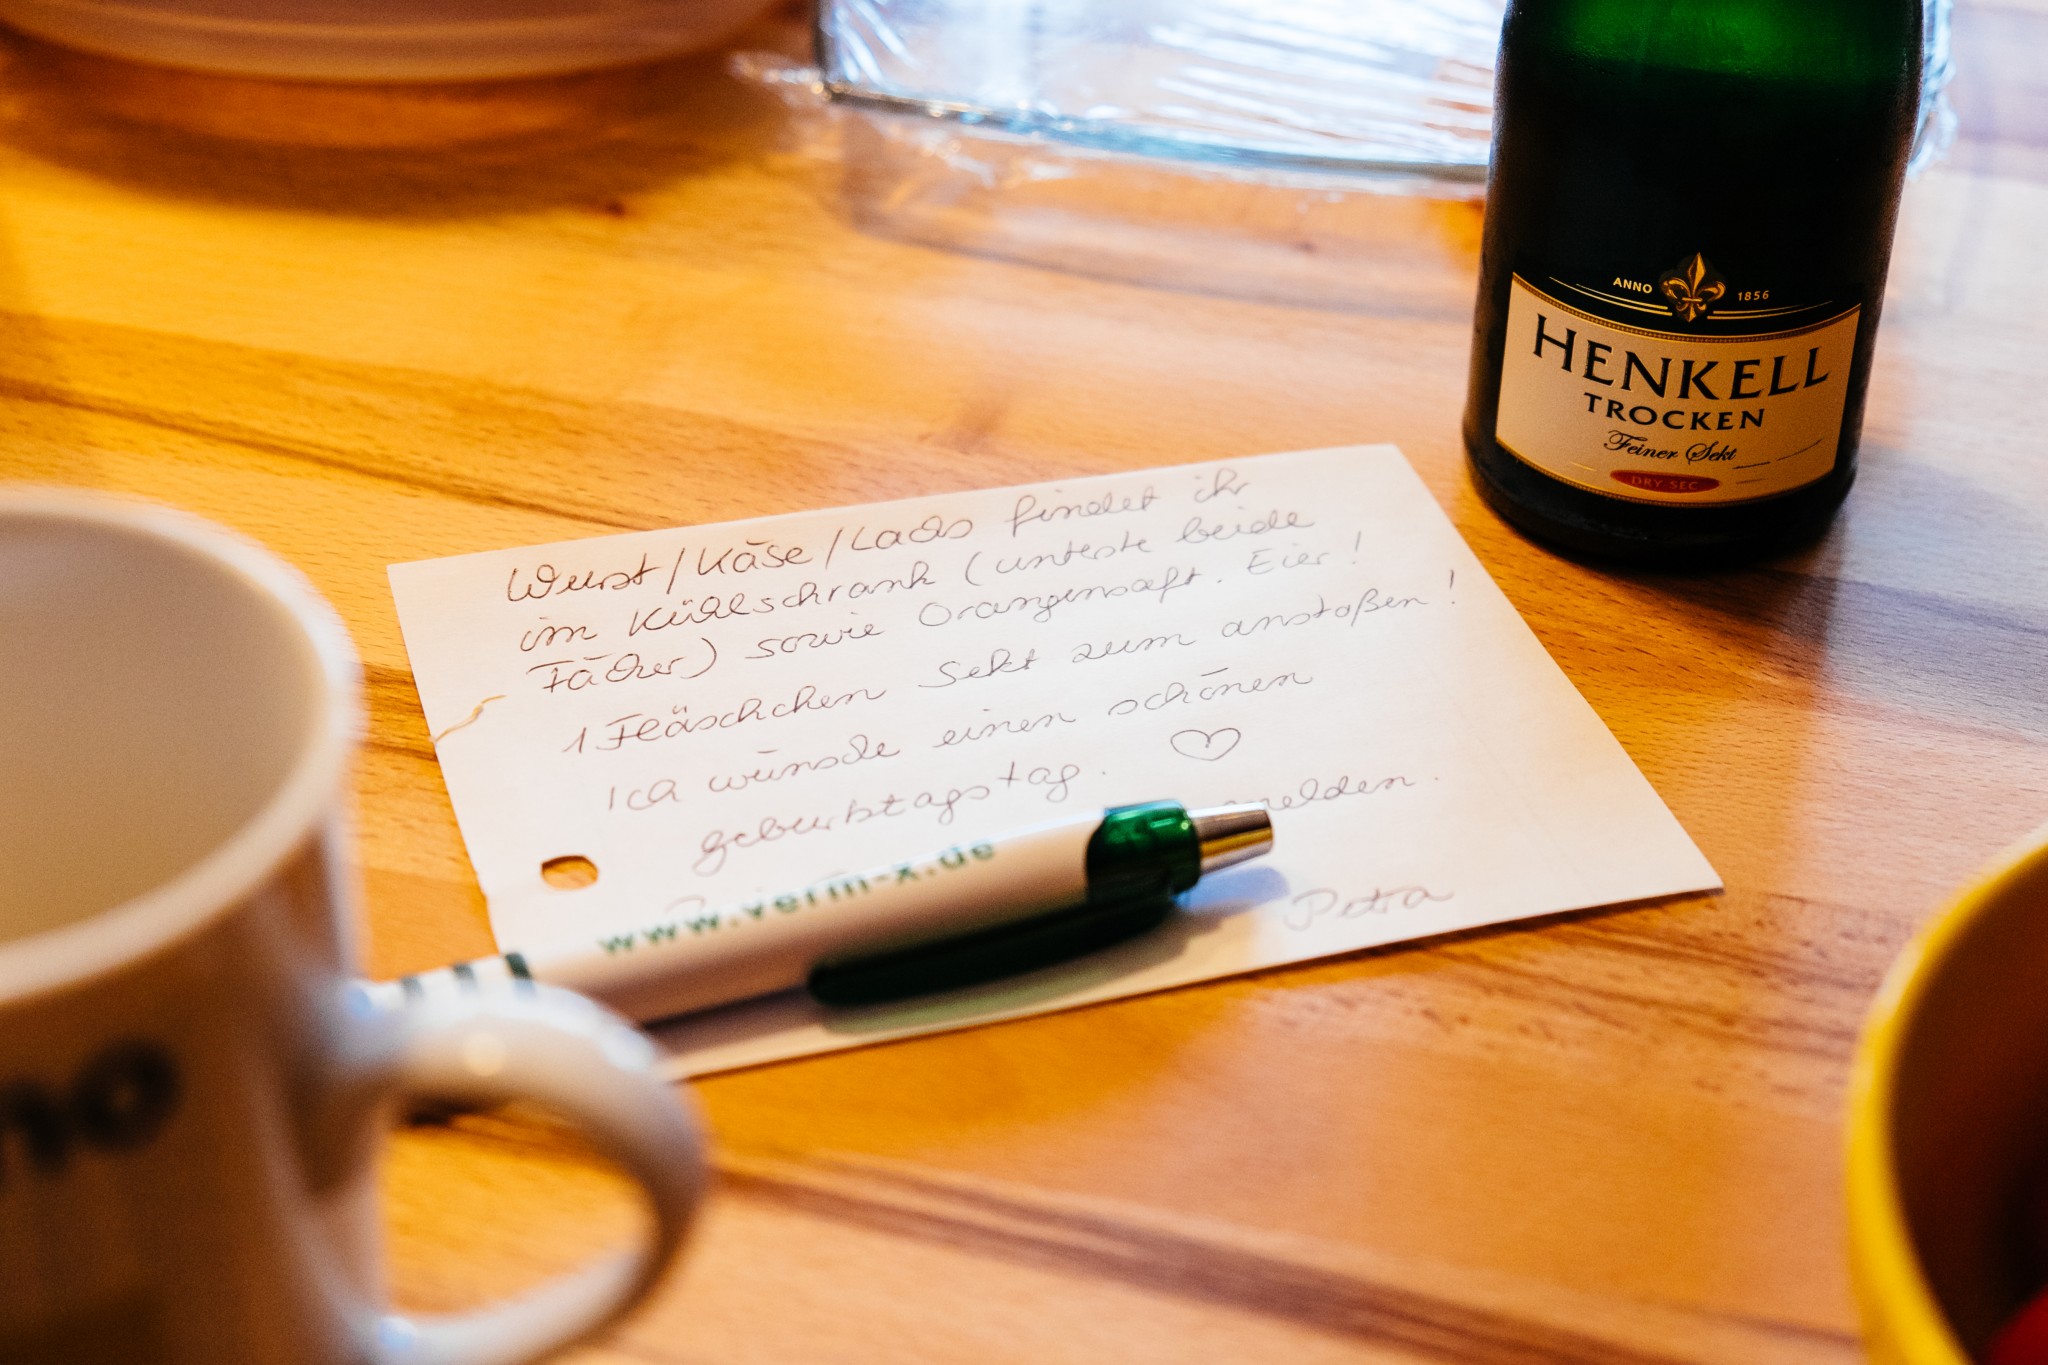 ANNO 1856
HENKELL
TROCKEN
Feiner Sekt
DRY-SEC
Wurst/Käse/Lachs findet ihr
im Kühlschrank (unterste beide
Fächer) sowie Orangensaft. Eier!
1 Fläschchen Sekt zum anstoßen!
Ich wünsche einen schönen
geburtstagstag. ♡
melden.
Petra
www.verm-x.de